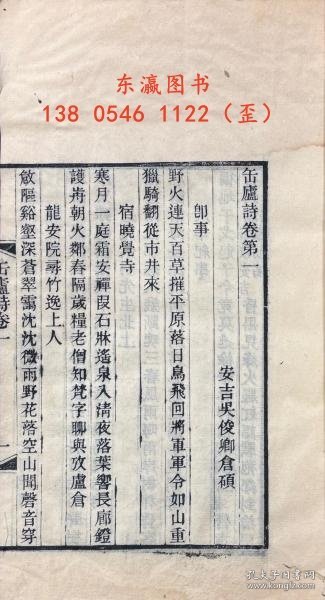 东瀛图书
138 0546 1122（歪）
缶廬詩卷第一
安吉吳俊卿倉碩
卽事
野火連天百草摧平原落日鳥飛回將軍軍令如山重
獵騎翻從市井來
宿曉覺寺
寒月一庭霜安禪叚石牀遙泉入清夜落葉響長廊鐙
護耑朝火鄰春隔歲糧老僧知梵字聊與攷盧倉
龍安院尋竹逸上人
敧隁谿壑深蒼翠靄沈沈微雨野花落空山聞磬音穿
缶廬詩卷一
一
孔夫子旧书网